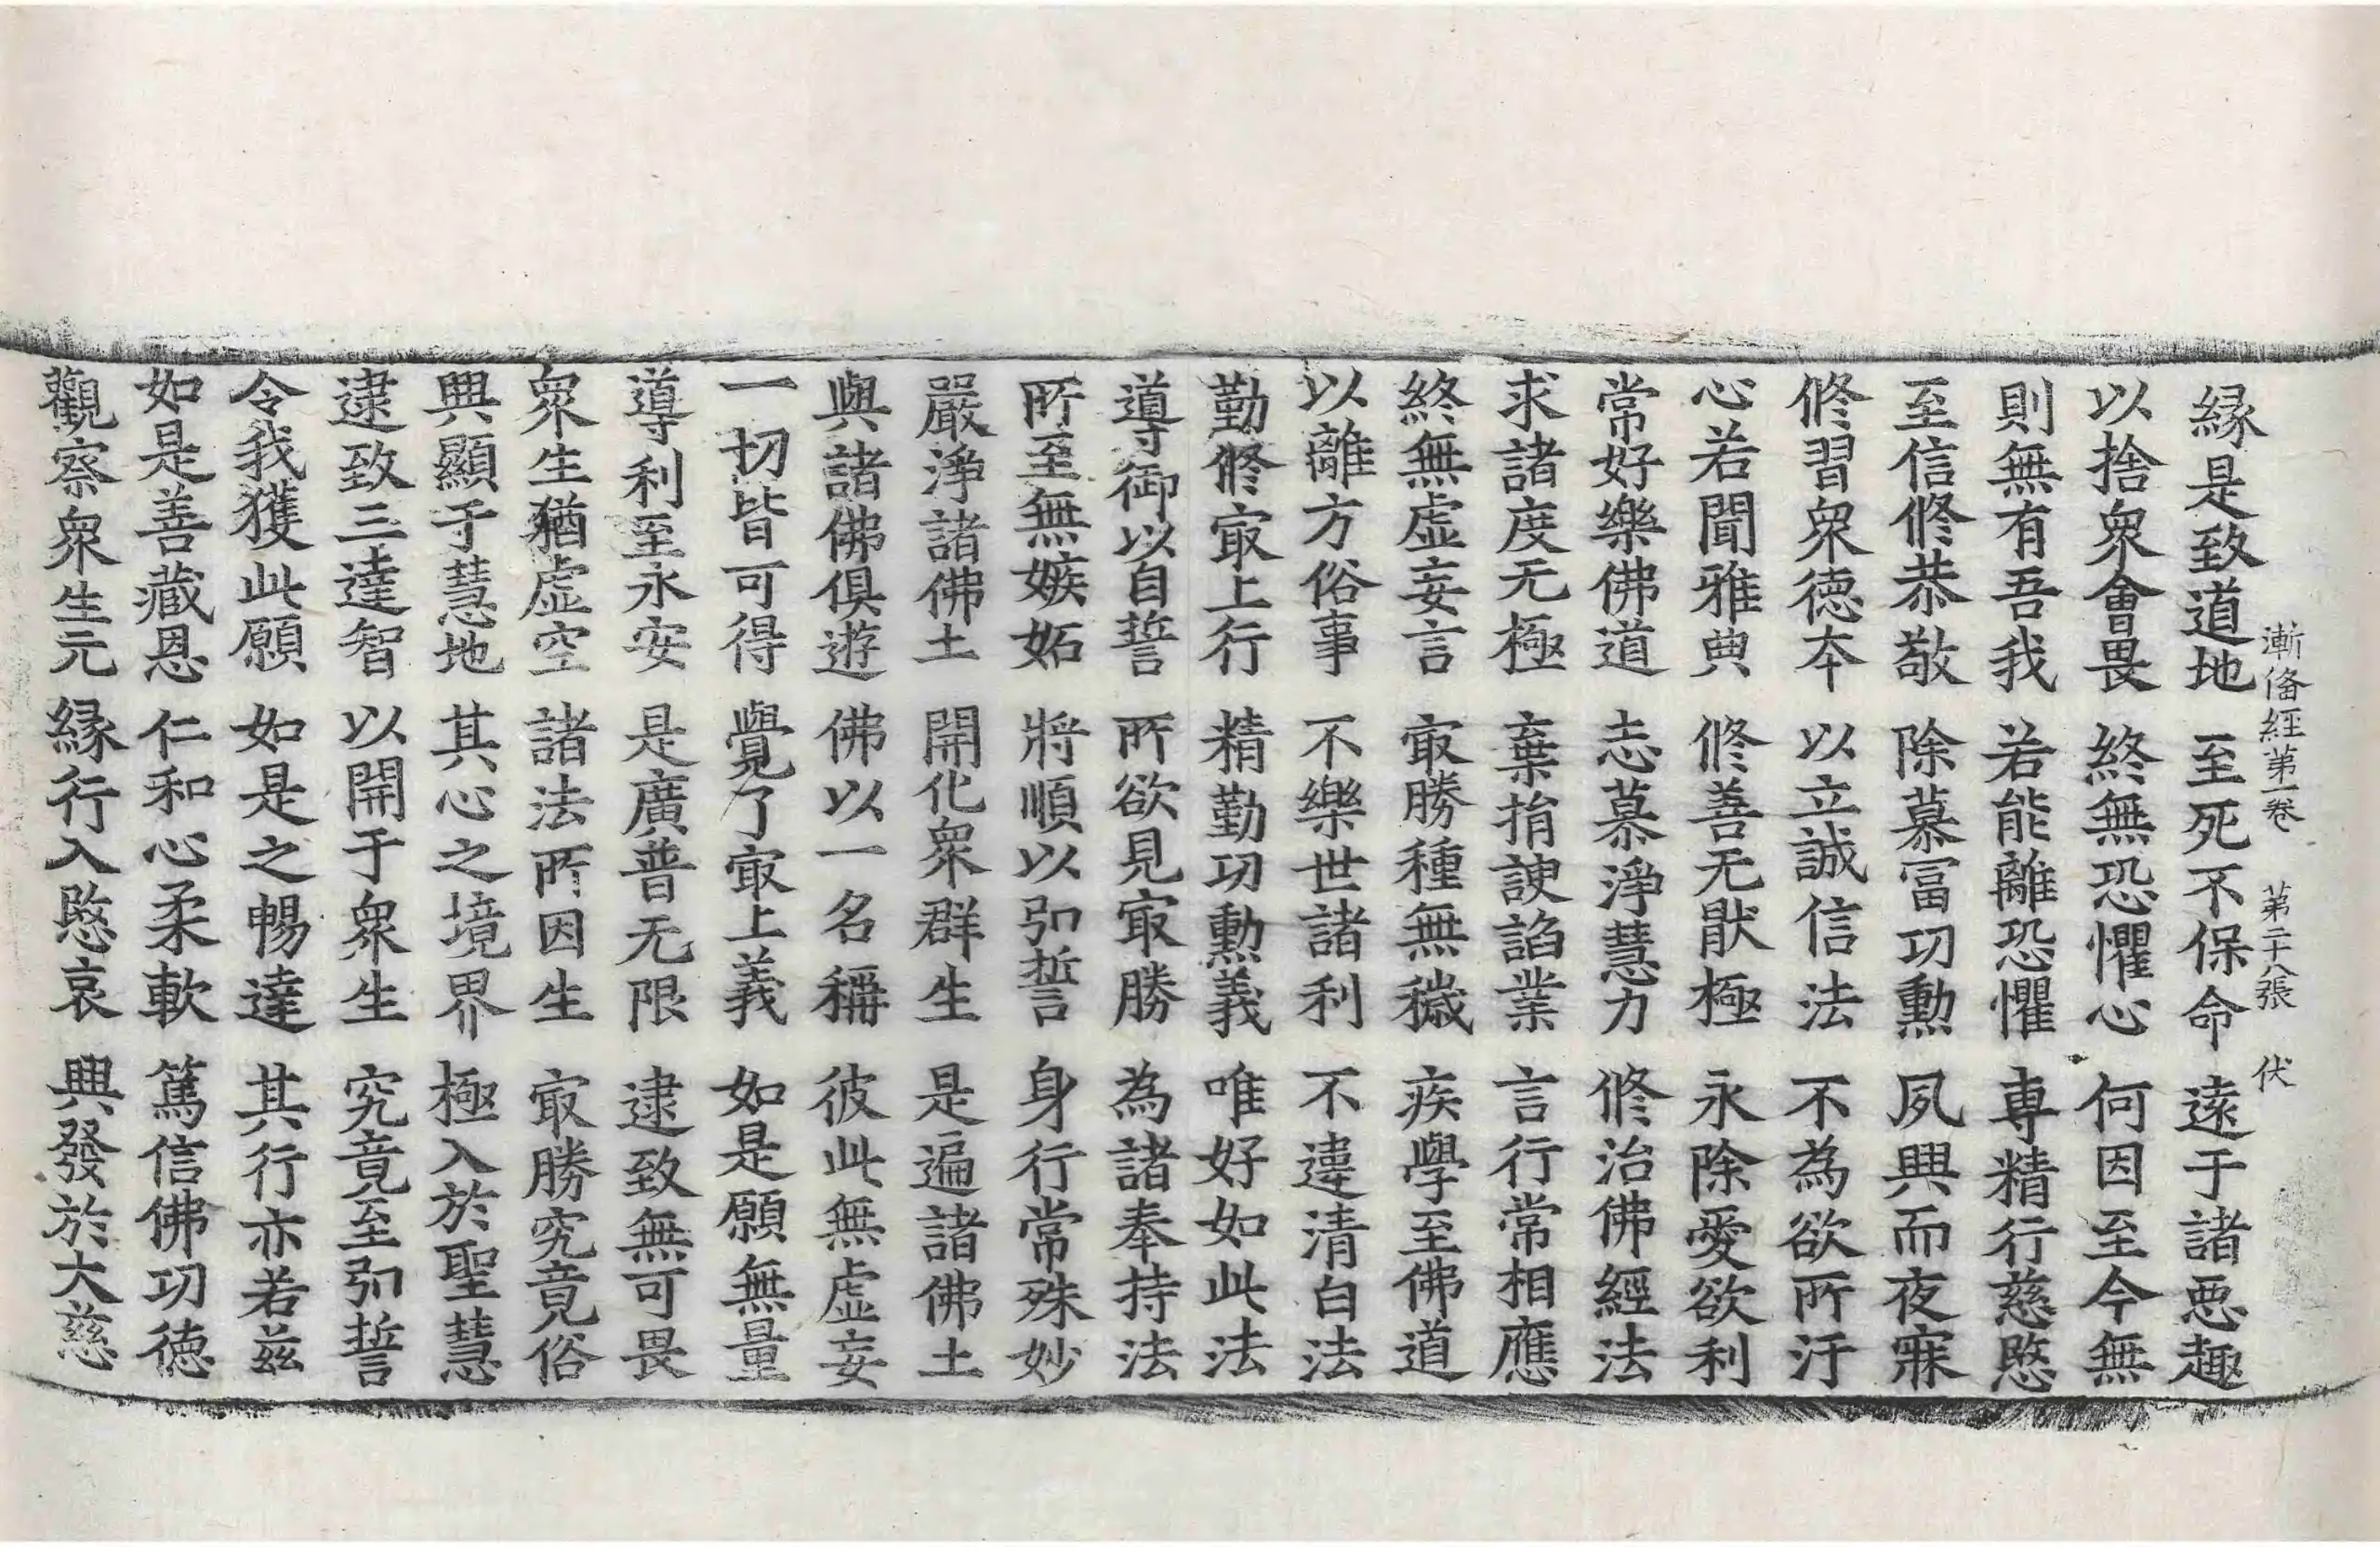 漸俻經第一卷 第二十八張 伏
縁是致道地 至死不保命 遠于諸惡趣
以捨衆會畏 終無恐懼心 何因至今無
則無有吾我 若能離恐懼 専精行慈愍
至信修恭敬 除慕冨功勲 夙興而夜寐
修習衆德夲 以立誠信法 不為欲所汙
心若聞雅典 修善无猒極 永除愛欲利
常好樂佛道 志慕淨慧力 修治佛經法
求諸度无極 棄捐諛諂業 言行常相應
終無虛妄言 㝡勝種無穢 疾學至佛道
以離方俗事 不樂世諸利 不違清白法
勤修㝡上行 精勤功勲義 唯好如此法
導御以自誓 所欲見㝡勝 為諸奉持法
所至無嫉妬 將順以弘誓 身行常殊妙
嚴淨諸佛土 開化衆群生 是遍諸佛土
與諸佛俱遊 佛以一名稱 彼此無虛妄
一切皆可得 覺了㝡上義 如是願無量
導利至永安 是廣普无限 逮致無可畏
衆生猶虛空 諸法所因生 㝡勝究竟俗
興顯于慧地 其心之境界 極入於聖慧
逮致三達智 以開于衆生 究竟至弘誓
令我獲此願 如是之暢達 其行亦若茲
如是善藏恩 仁和心柔軟 篤信佛功德
觀察衆生元 縁行入愍哀 興發於大慈